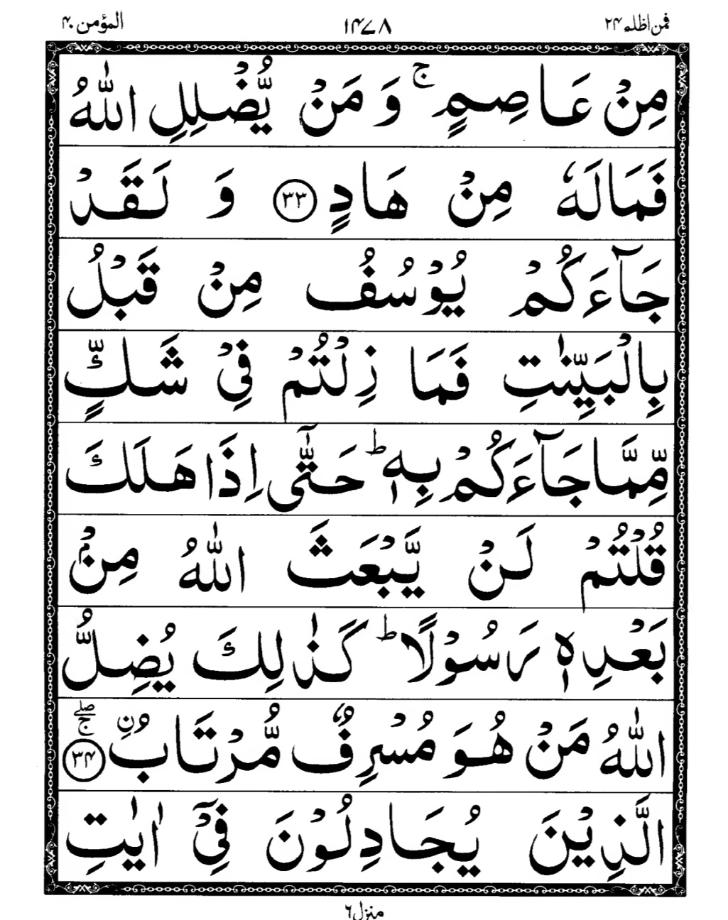 فمن اظلم ٢٤ ١٤٧٨ المؤمن ٤٠
مِنْ عَاصِمٍ ۚ وَ مَنْ يُّضْلِلِ اللّٰهُ
فَمَالَهٗ مِنْ هَادٍ ﴿٣٣﴾ وَ لَقَدْ
جَآءَكُمْ يُوْسُفُ مِنْ قَبْلُ
بِالْبَيِّنٰتِ فَمَا زِلْتُمْ فِيْ شَكٍّ
مِّمَّا جَآءَكُمْ بِهٖ ؕ حَتّٰٓى اِذَا هَلَكَ
قُلْتُمْ لَنْ يَّبْعَثَ اللّٰهُ مِنْۢ
بَعْدِهٖ رَسُوْلًا ؕ كَذٰلِكَ يُضِلُّ
اللّٰهُ مَنْ هُوَ مُسْرِفٌ مُّرْتَابُ ۨ ﴿٣٤﴾ ۚۖ
الَّذِيْنَ يُجَادِلُوْنَ فِيْٓ اٰيٰتِ
منزل ٦